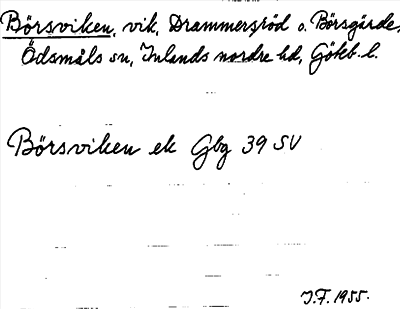 Börsviken, vik, Drammersröd o. Börsgärde,
Ödsmåls sn, Inlands nordre hd, Göteb. l.
Börsviken ek Gbg 39 SV
J.F. 1955.